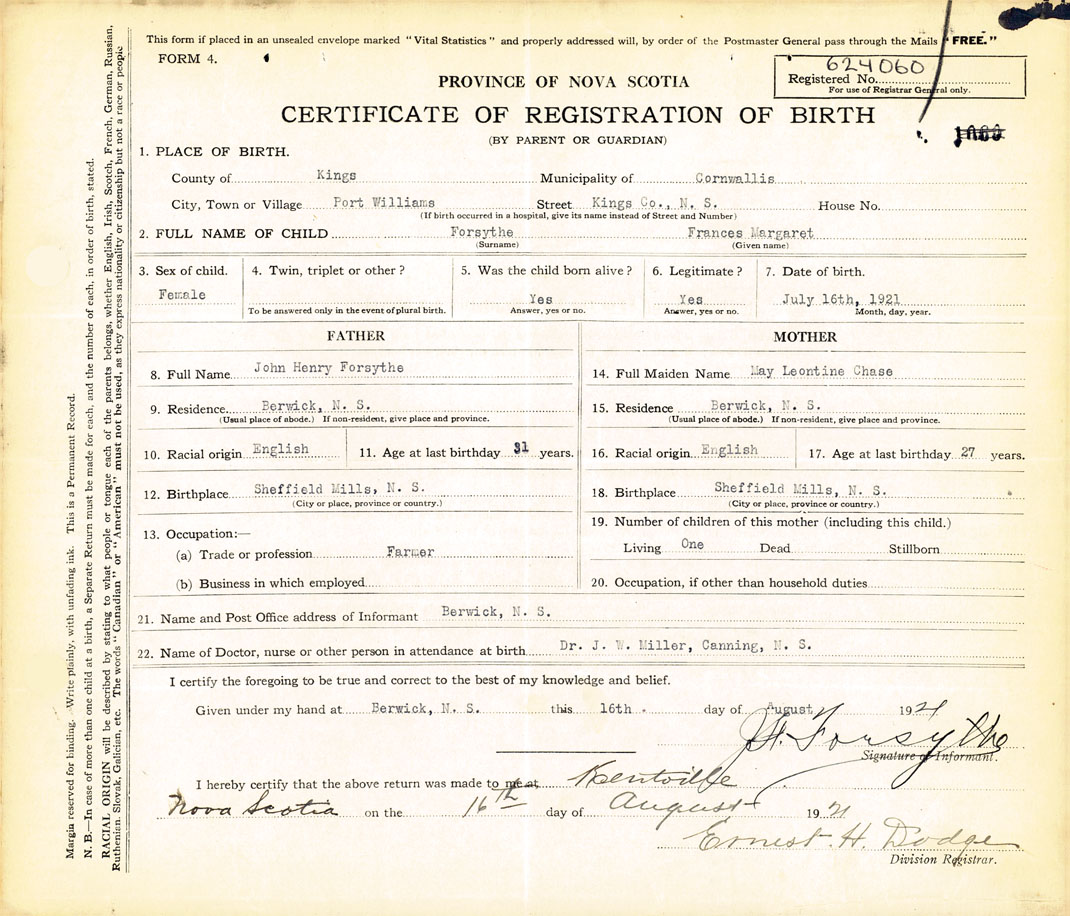 This form if placed in an unsealed envelope marked "Vital Statistics" and properly addressed will, by order of the Postmaster General pass through the Mails "FREE."
FORM 4.
624060
Registered No.
For use of Registrar General only.
PROVINCE OF NOVA SCOTIA
CERTIFICATE OF REGISTRATION OF BIRTH
(BY PARENT OR GUARDIAN)
1. PLACE OF BIRTH.
County of Kings Municipality of Cornwallis
City, Town or Village Port Williams Street Kings Co., N. S. House No.
(If birth occurred in a hospital, give its name instead of Street and Number)
2. FULL NAME OF CHILD Forsythe Frances Margaret
(Surname) (Given name)
3. Sex of child. 4. Twin, triplet or other? 5. Was the child born alive? 6. Legitimate? 7. Date of birth.
Female Yes Yes July 16th, 1921
To be answered only in the event of plural birth. Answer, yes or no. Answer, yes or no. Month, day, year.
FATHER
8. Full Name John Henry Forsythe
9. Residence Berwick, N. S.
(Usual place of abode.) If non-resident, give place and province.
10. Racial origin English 11. Age at last birthday 31 years.
12. Birthplace Sheffield Mills, N. S.
(City or place, province or country.)
13. Occupation:—
(a) Trade or profession Farmer
(b) Business in which employed
MOTHER
14. Full Maiden Name May Leontine Chase
15. Residence Berwick, N. S.
(Usual place of abode.) If non-resident, give place and province.
16. Racial origin English 17. Age at last birthday 27 years.
18. Birthplace Sheffield Mills, N. S.
(City or place, province or country.)
19. Number of children of this mother (including this child.)
Living One Dead Stillborn
20. Occupation, if other than household duties
21. Name and Post Office address of Informant Berwick, N. S.
22. Name of Doctor, nurse or other person in attendance at birth Dr. J. W. Miller, Canning, N. S.
I certify the foregoing to be true and correct to the best of my knowledge and belief.
Given under my hand at Berwick, N. S. this 16th day of August 1921
J.H. Forsythe
Signature of Informant.
I hereby certify that the above return was made to me at Kentville
Nova Scotia on the 16th day of August 1921
Ernest H. Dodge
Division Registrar.
Margin reserved for binding. Write plainly, with unfading ink. This is a Permanent Record.
N. B.—In case of more than one child at a birth, a Separate Return must be made for each, and the number of each, in order of birth, stated.
RACIAL ORIGIN will be described by stating to what people or tongue each of the parents belongs, whether English, Irish, Scotch, French, German, Russian,
Ruthenian, Slovak, Galician, etc. The words "Canadian" or "American" must not be used, as they express nationality or citizenship but not a race or people